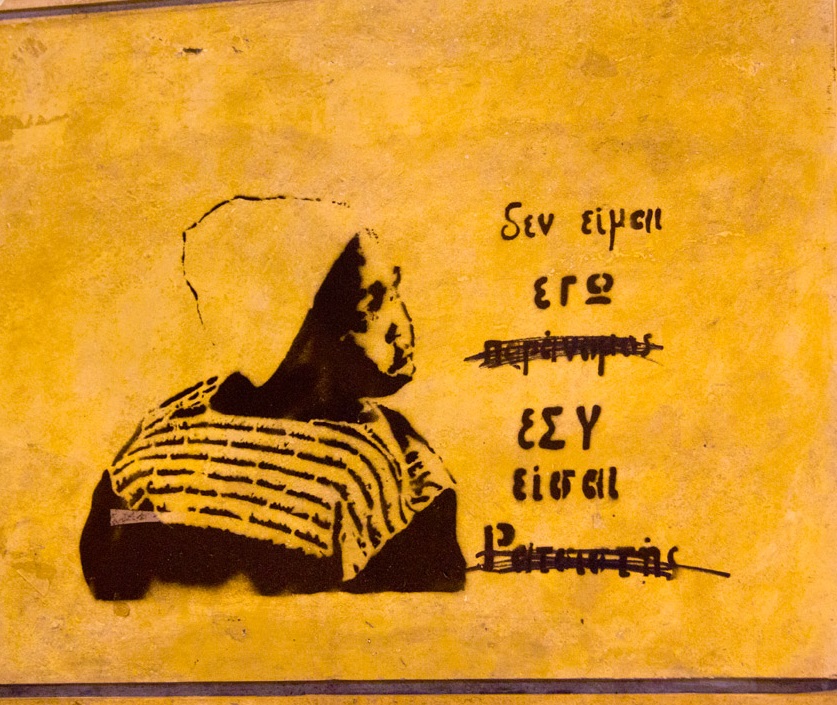 δεν είμαι
εΓΩ
παράνομος
ΕΣΥ
είσαι
Ρατσιστής